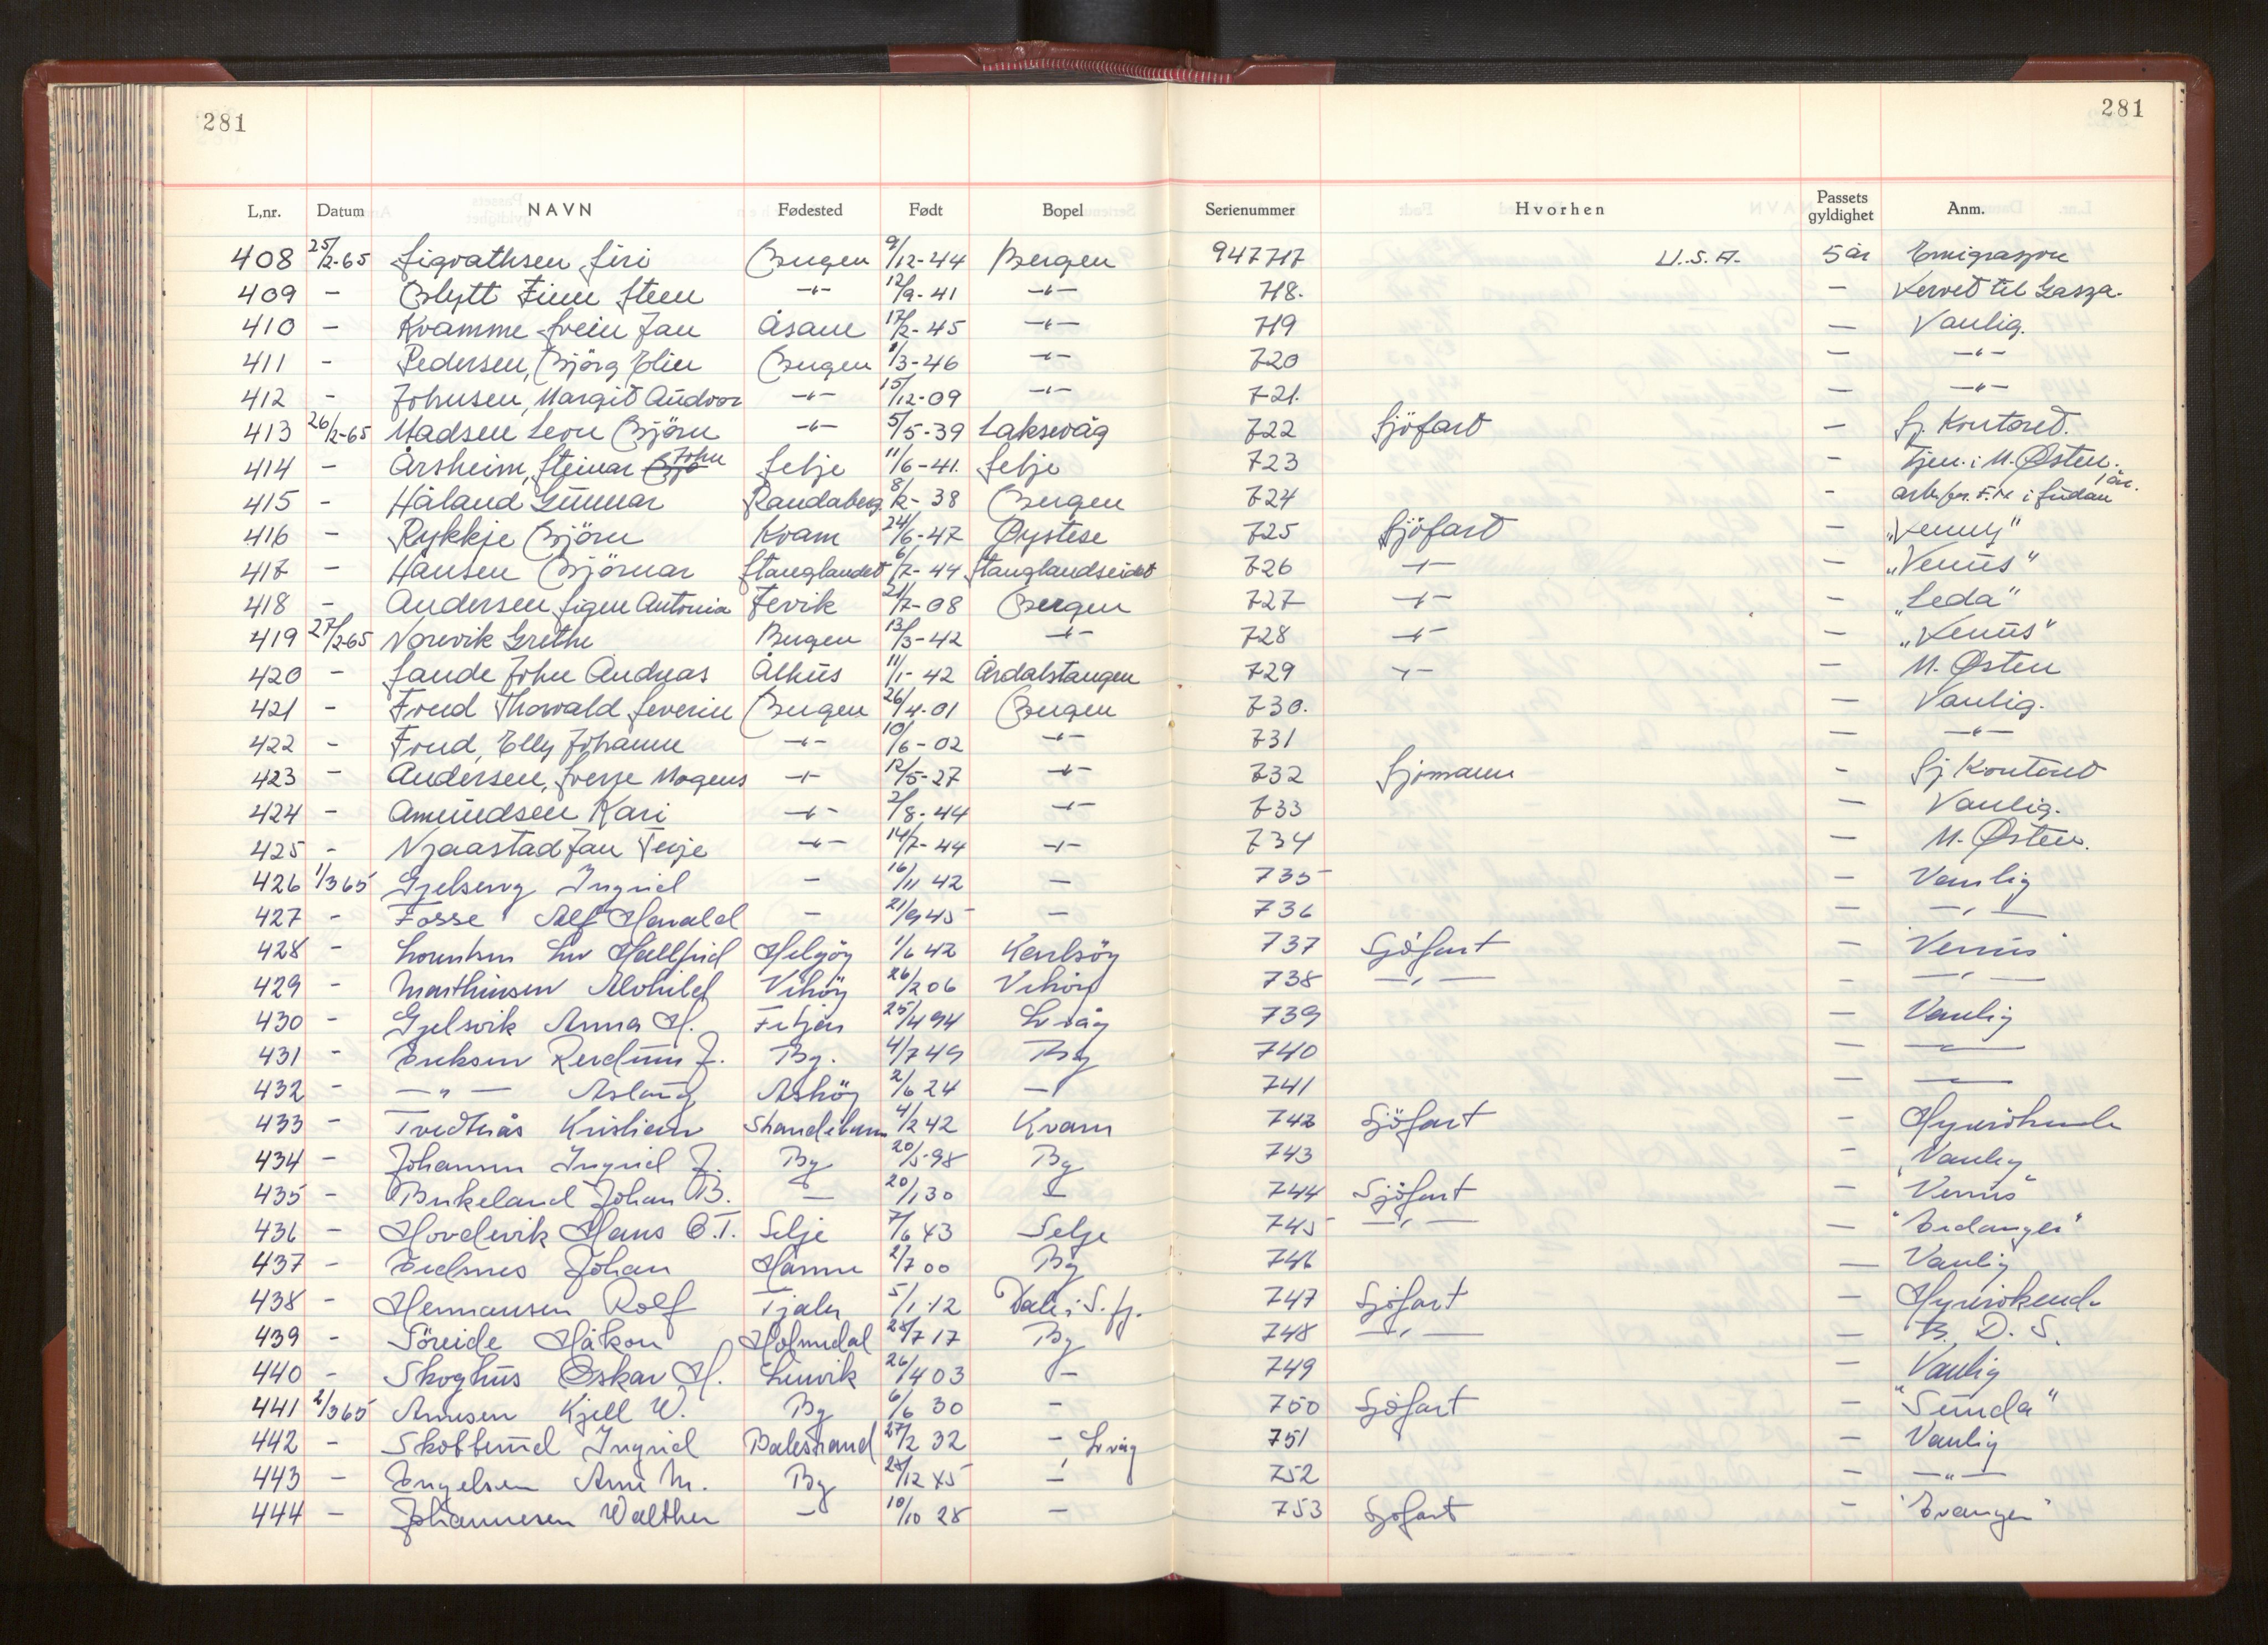 281 281
L,nr. Datum NAVN Fødested Født Bopel Serienummer Hvorhen Passets gyldighet Anm.
408 25/2-65 Sigvathsen Siri Bergen 9/12-44 Bergen 947717 U.S.A. 5 år Emigrasjon
409 - Blytt Finn Steen -"- 12/9-41 -"- 718. - Vervet til Gasza.
410 - Kvamme Svein Jan Åsane 17/2-45 -"- 719 - Vanlig.
411 - Pedersen, Bjørg Elin Bergen 1/3-46 -"- 720 - -"-
412 - Johnsen, Margit Audvor -"- 15/12-09 -"- 721. - -"-
413 26/2-65 Madsen Leon Björn -"- 5/5-39 Laksevåg 722 Sjöfart - Sj. Kontoret.
414 - Årsheim, Steinar John Selje 11/6-41. Selje 723 - Tjen. i M. Østen.
415 - Håland Gunnar Randaberg 8/2-38 Bergen 724 - i Sudan 1 år.
416 - Rykkje Björn Kvam 24/6-47 Øystese 725 Sjöfart - „Venus"
417 - Hansen Björnar Stanglandet 6/7-44 Stanglandseidet 726 -"- - „Venus"
418 - Andersen Signe Antonia Fevik 21/7-08 Bergen 727 -"- - „Leda"
419 27/2-65 Norevik Grethe Bergen 13/3-42 -"- 728 -"- - „Venus"
420 - Sande John Andreas Ålhus 11/1-42 Årdalstangen 729 -"- - M. Østen
421 - Frud Thorvald Severin Bergen 26/4-01 Bergen 730. - Vanlig.
422 - Frud, Elly Johanne -"- 10/6-02 -"- 731 - -"-
423 - Andersen, Sverre Mogens -"- 12/5-27 -"- 732 Sjømann - Sj. Kontoret
424 - Amundsen Kari -"- 2/8-44 -"- 733 - Vanlig.
425 - Njaastad Jan Terje -"- 14/7-44 -"- 734 - M. Østen.
426 1/3 65 Ingrid - 16/11 42 - 735 - Vanlig
427 - Fosse Alf Harald - 21/9 45 - 736 - -"-
428 - Lorentsen Liv Hallfrid Helgöy 1/6 42 Karlsöy 737 Sjöfart - "Venus"
429 - Marthinsen Alvhild Vihöy 26/2 06 Vihöy 738 -"- - -"-
430 - Gjelsvik Anna H. Fitjar 25/4 94 L.våg 739 - Vanlig
431 - Eriksen Reidunn J. Bg. 4/7 49 Bg 740 - -"-
432 - -"- Aslaug Asköy 2/6 24 - 741 - -"-
433 - Tvedtnås Kristian Strandebarm 4/2 42 Kvam 742 Sjöfart - Hyrirökende
434 - Johannsen Ingrid J. Bg 20/5-98 Bg 743 - Vanlig
435 - Birkeland Johan B. - 20/1 30 - 744 Sjöfart - "Venus"
436 - Hovdevik Hans O.T. Selje 7/6 43 Selje 745 -"- - "Eidanger"
437 - Eidsnes Johan Hamre 2/7 00 Bg 746 - Vanlig
438 - Hermansen Rolf Fjaler 5/1-12 Dale i S. fj. 747 Sjöfart - Hyrirökende
439 - Söreide Håkon Holmedal 28/7 17 Bg 748 -"- - B. D. S.
440 - Skoghus Oskar H. Leirvik 26/4 03 - 749 - Vanlig
441 2/3 65 Arnesen Kjell W. Bg 6/6 30 - 750 Sjöfart - "Sunda"
442 - Ingrid Balestrand 27/2 32 -, L.våg 751 - Vanlig
443 - Engelsen Arne M. Bg 28/12 45 - 752 - -"-
444 - Johannesen Walther - 10/10 28 - 753 Sjöfart - "Evanger"